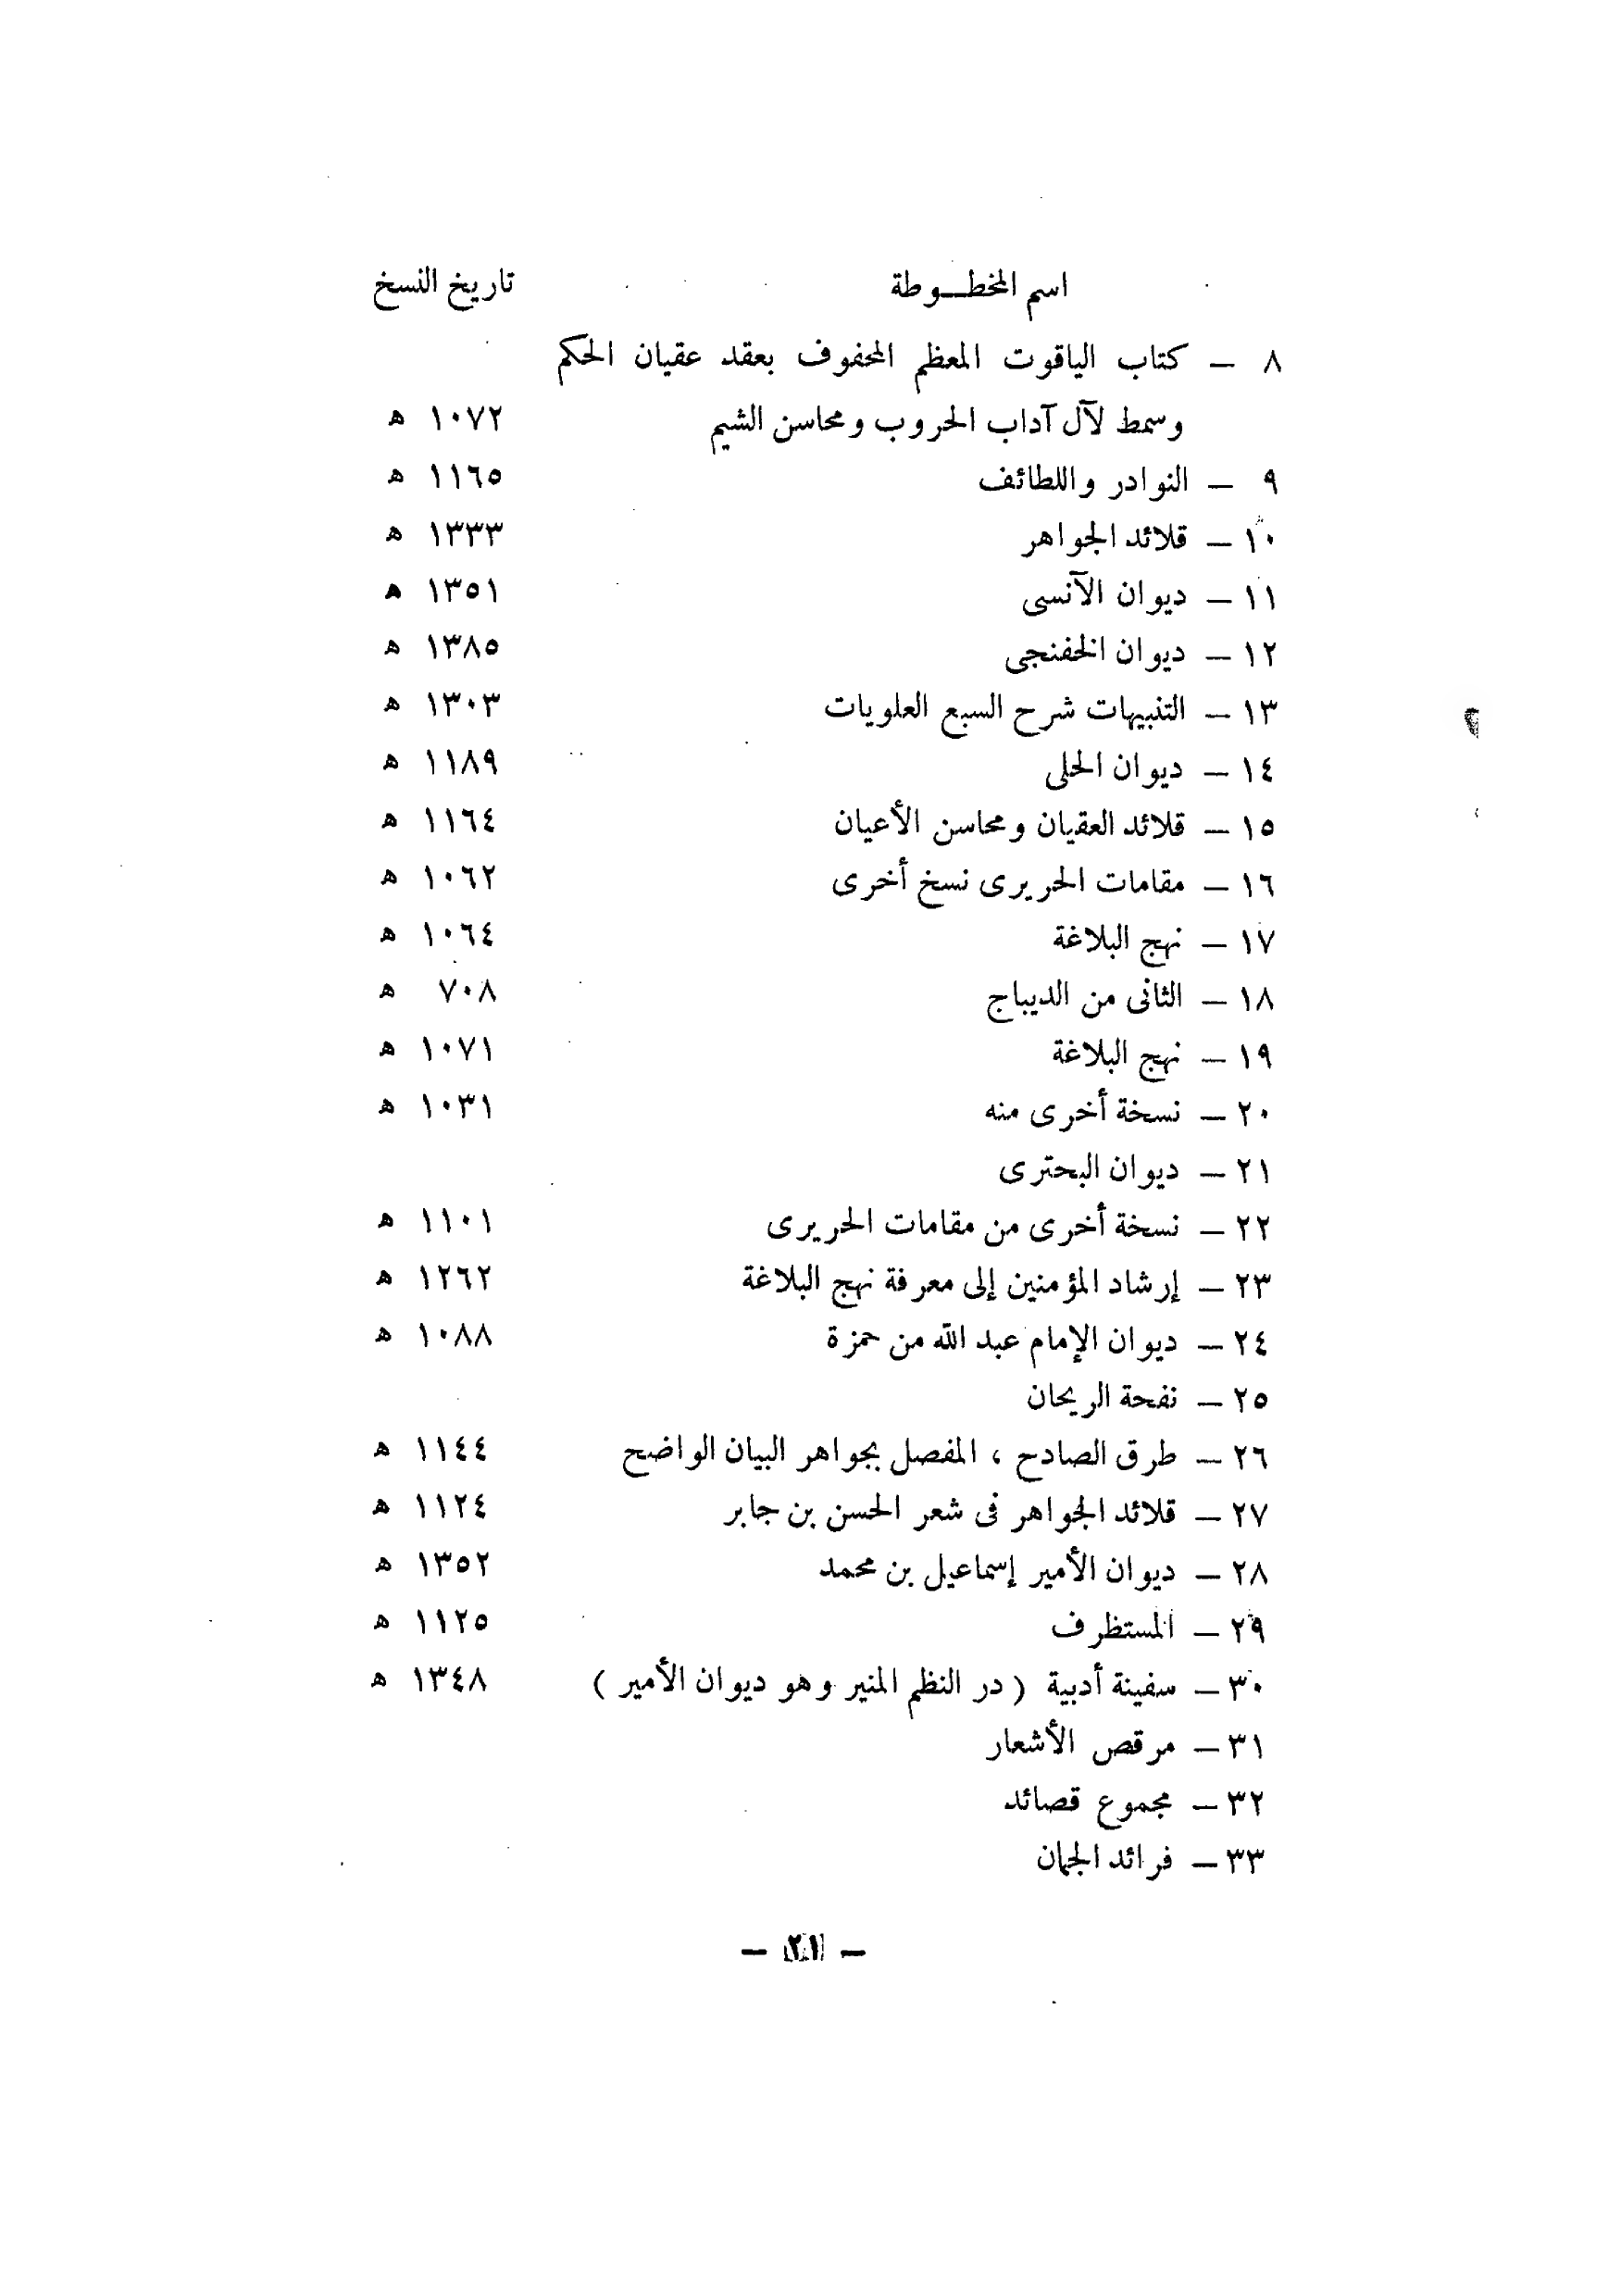 اسم المخطـوطة تاريخ النسخ
٨ — كتاب الياقوت المعظم المحفوف بعقد عقيان الحكم
وسمط لآل آداب الحروب ومحاسن الشيم ١٠٧٢ ه
٩ — النوادر واللطائف ١١٦٥ ه
١٠ — قلائد الجواهر ١٣٣٣ ه
١١ — ديوان الآنسى ١٣٥١ ه
١٢ — ديوان الخفنجى ١٣٨٥ ه
١٣ — التنبيهات شرح السبع العلويات ١٣٠٣ ه
١٤ — ديوان الحلى ١١٨٩ ه
١٥ — قلائد العقيان ومحاسن الأعيان ١١٦٤ ه
١٦ — مقامات الحريرى نسخ أخرى ١٠٦٢ ه
١٧ — نهج البلاغة ١٠٦٤ ه
١٨ — الثانى من الديباج ٧٠٨ ه
١٩ — نهج البلاغة ١٠٧١ ه
٢٠ — نسخة أخرى منه ١٠٣١ ه
٢١ — ديوان البحترى
٢٢ — نسخة أخرى من مقامات الحريرى ١١٠١ ه
٢٣ — إرشاد المؤمنين إلى معرفة نهج البلاغة ١٢٦٢ ه
٢٤ — ديوان الإمام عبد الله من حمزة ١٠٨٨ ه
٢٥ — نفحة الريحان
٢٦ — طرق الصادح ، المفصل بجواهر البيان الواضح ١١٤٤ ه
٢٧ — قلائد الجواهر فى شعر الحسن بن جابر ١١٢٤ ه
٢٨ — ديوان الأمير إسماعيل بن محمد ١٣٥٢ ه
٢٩ — المستظرف ١١٢٥ ه
٣٠ — سفينة أدبية ( در النظم المنير وهو ديوان الأمير ) ١٣٤٨ ه
٣١ — مرقص الأشعار
٣٢ — مجموع قصائد
٣٣ — فرائد الجمان
— ٢١ —